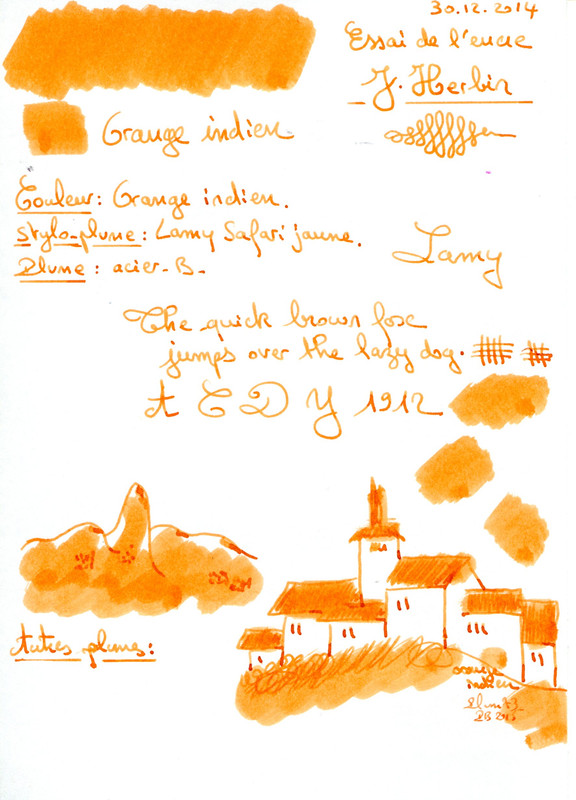 30.12.2014
Essai de l'encre
J. Herbin
Orange indien
Couleur : Orange indien.
Stylo-plume : Lamy Safari jaune.
Plume : acier - B -
Lamy
The quick brown fox
jumps over the lazy dog.
A C D Y 1912
Autres plumes :
orange
indien